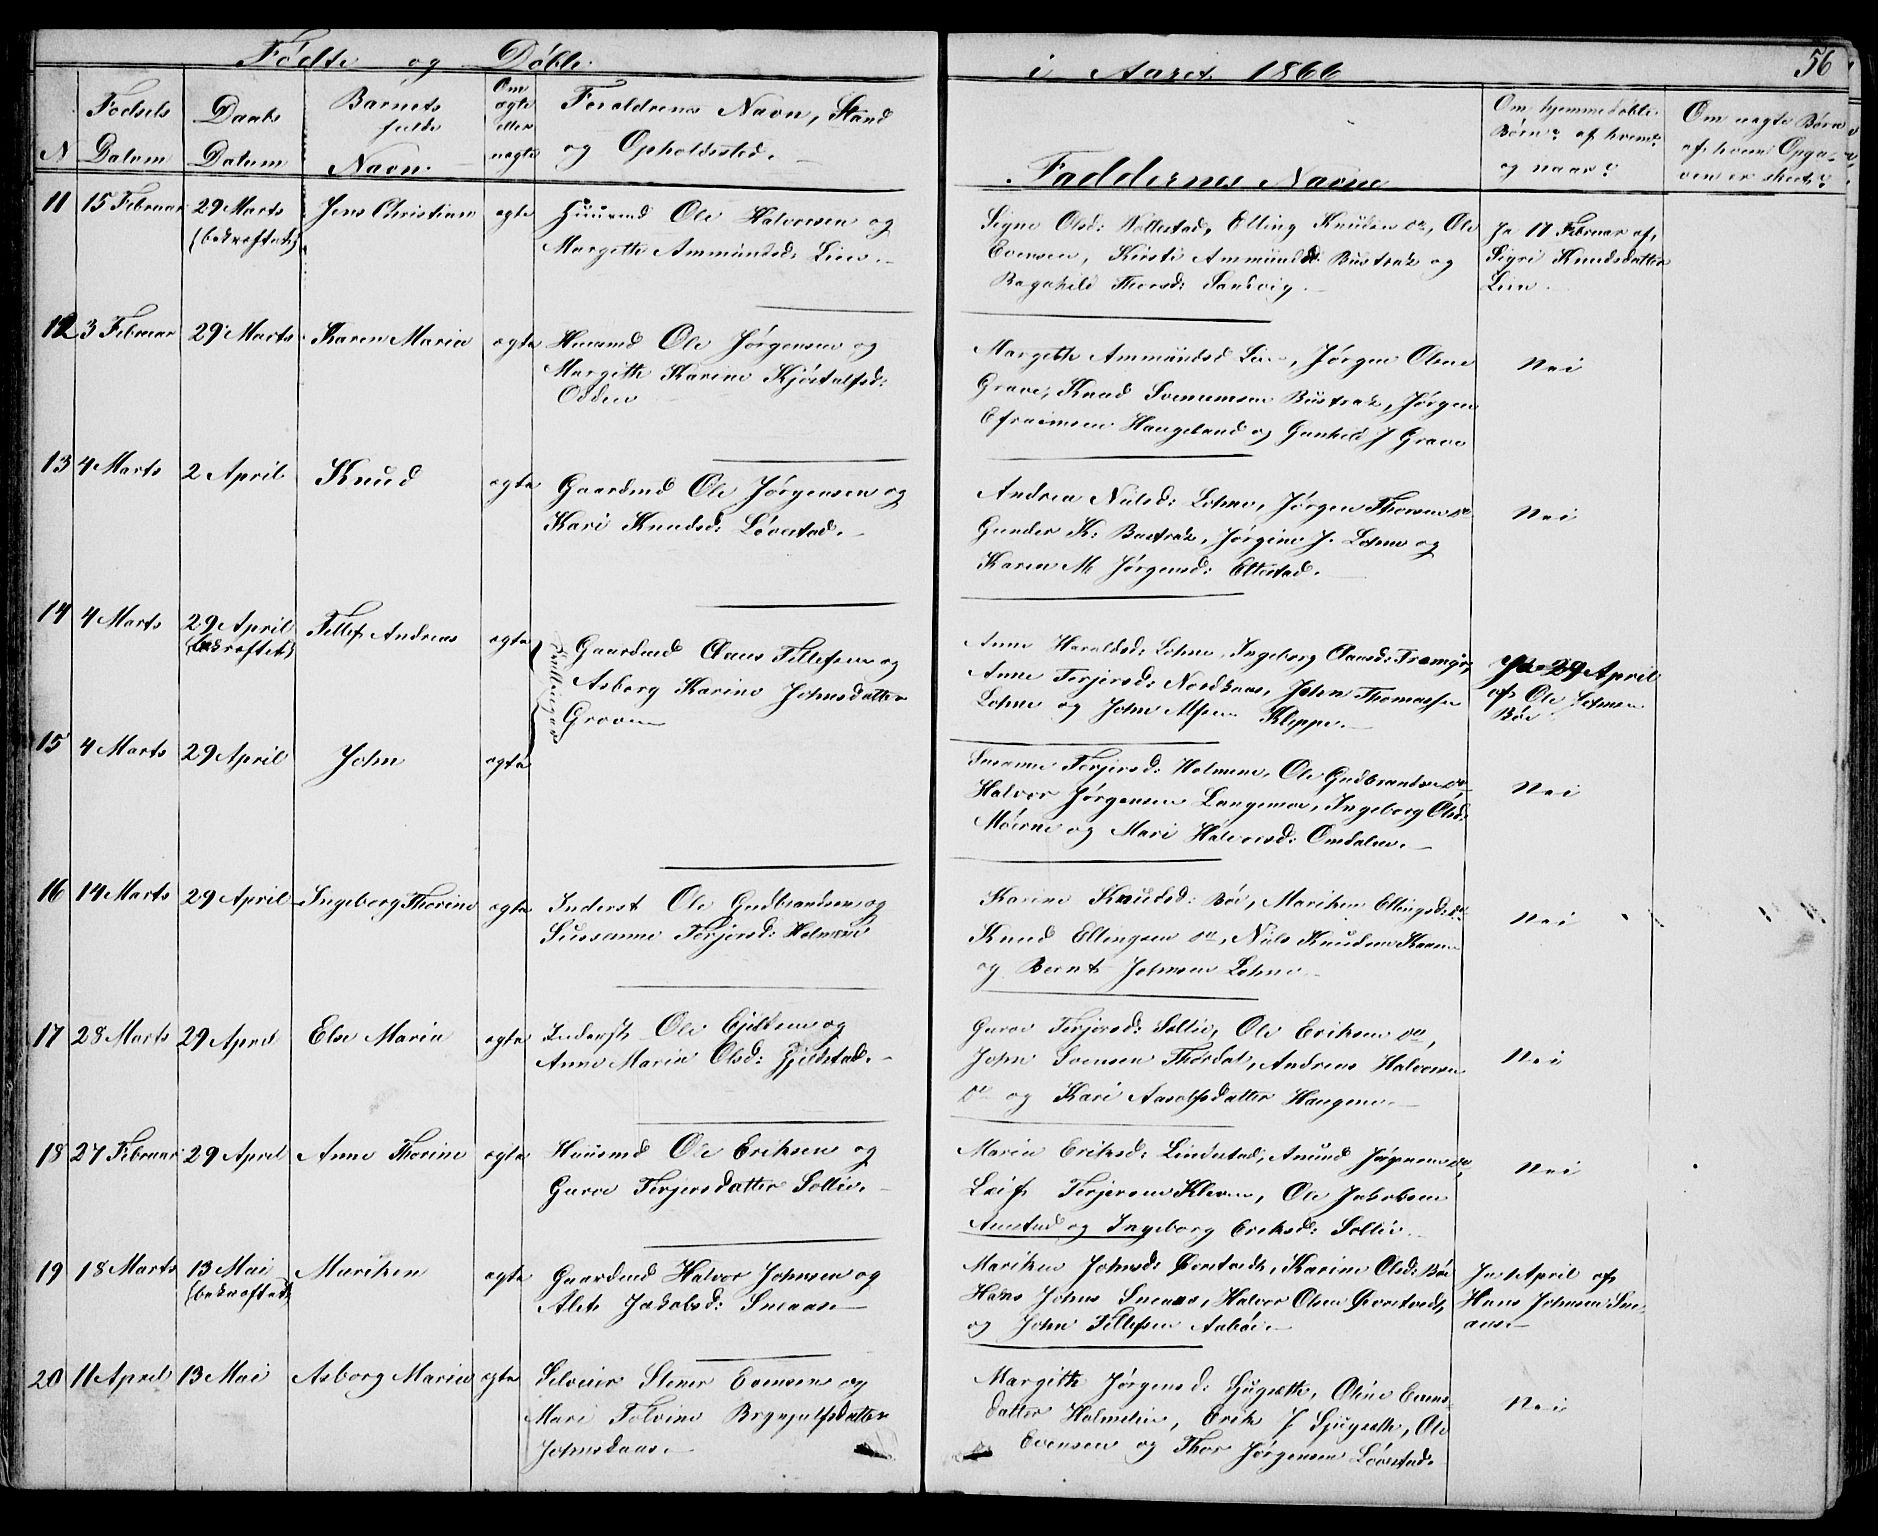 Födte og Döbte i Aaret 1866 56
N
Fødsels Datum
Daabs Datum
Barnets fulde Navn
Om ægte eller uægte
Forældrenes Navn, Stand og Opholdssted.
Faddernes Navne
Om hjemmedøbte Børn? af hvem? og naar?
Om uægte Børn af hvem Opgaven er skeet?
11 15 Februar 29 Marts (bekræftet) Jens Christian ægte
Huusmd Ole Halvorsen og
Margethe Ammundsd: Lien.
Signe Olsd: Nottestad, Elling Knudsen do, Ole
Evensen, Kirsti Ammundsd: Bustrak og
Ragnhild Thorsd: Sandvig.
Ja 17 Februar af
Sigri Knudsdatter
Lien.
12 3 Februar 29 Marts Karen Marie ægte
Huusmd Ole Jørgensen og
Margith Karine Kjøstolfsd:
Odden
Margith Ammundsd Lien, Jørgen Olsen
Grave, Knud Svenumsen Bustrak, Jørgen
Efraimsen Haugeland og Gunhild J Grave
Nei
13 4 Marts 2 April Knud ægte
Gaardmd Ole Jørgensen og
Kari Knudsd: Løvestad.
Andrea Nilsd: Lohne, Jørgen Thorsen do
Gunder K: Bustrak, Jørgine J. Lohne og
Karen M. Jørgensd: Ettestad.
Nei
14 4 Marts 29 April (bekræftet) Tellef Andreas ægte
Tvillinger
Gaardmd Claus Tellefsen og
Asborg Karine Johnsdatter
Groven
Anne Haraldsd: Lohne, Ingeborg Clausd: Tramgja,
Anne Terjersd: Nordkaas, John Thomassen
Lohne og John Alfsen Kleppe.
Ja 29 April
af Ole Johnsen
Bøe
15 4 Marts 29 April John ægte
Susanne Terjersd: Holmene, Ole Gudbrandsen do,
Halvor Jørgensen Langemoe, Ingeborg Olsd:
Moerne og Mari Halvorsd: Omdalen.
Nei
16 14 Marts 29 April Ingeborg Thorine ægte
Inderst Ole Gudbrandsen og
Sussanne Terjersd: Holmene
Karine Knudsd: Bøe, Mariken Ellingsd: do
Knud Ellingsen do, Nils Knudsen Kaasen
og Bernt Johnsen Lohne.
Nei
17 28 Marts 29 April Else Maria ægte
Inderst Ole Ejeltsen og
Anne Maria Olsd: Fjeldstad.
Guroe Terjersd: Sollie, Ole Eriksen do,
John Svensen Thordal, Andreas Halvorsen
do og Kari Aasolfsdatter Haugene.
Nei
18 27 Februar 29 April Anne Thorine ægte
Huusmd Ole Eriksen og
Guroe Terjersdatter Sollie.
Maria Eriksd: Lindestad, Amund Jørgensen do,
Leif Terjersen Kleven, Ole Jakobsen
Aunstad og Ingeborg Eriksd: Sollie.
Nei
19 18 Marts 13 Mai (bekræftet) Mariken ægte
Gaardmd Halvor Johnsen og
Alet Jakobsd: Sneaas
Mariken Johnsd: Øvretvedt, Karine Olsd: Bøe
Hans Johns Sneaas, Halvor Olsen Øvretvedt,
og John Tellefsen Aabøe.
Ja 1 April af
Hans Johnsen Sne-
aas
20 11 April 13 Mai Asborg Maria ægte
Selveier Stener Evensen og
Mari Tolvine Brynjulfsdatter
Johnsdaas.
Margith Jørgensd: Sjugseth, Oline Evens-
datter Holmelie, Erik J Sjugseth, Ole
Evensen og Thor Jørgensen Løvestad.
Nei